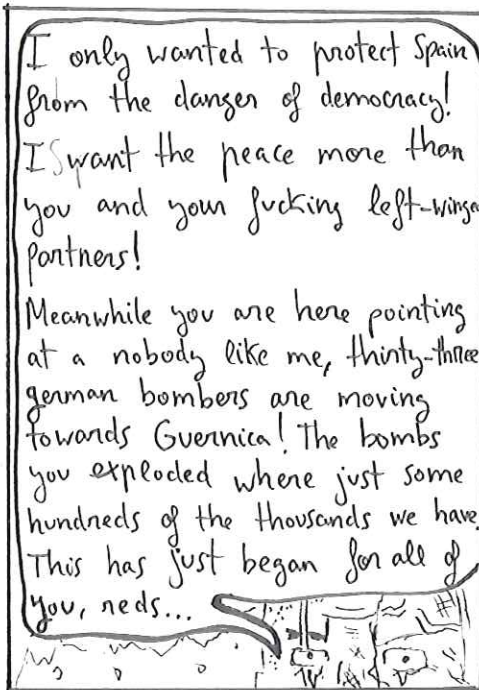 I only wanted to protect Spain
from the danger of democracy!
I want the peace more than
you and your fucking left-winged
partners!
Meanwhile you are here pointing
at a nobody like me, thirty-three
german bombers are moving
towards Guernica! The bombs
you exploded where just some
hundreds of the thousands we have.
This has just began for all of
you, reds...